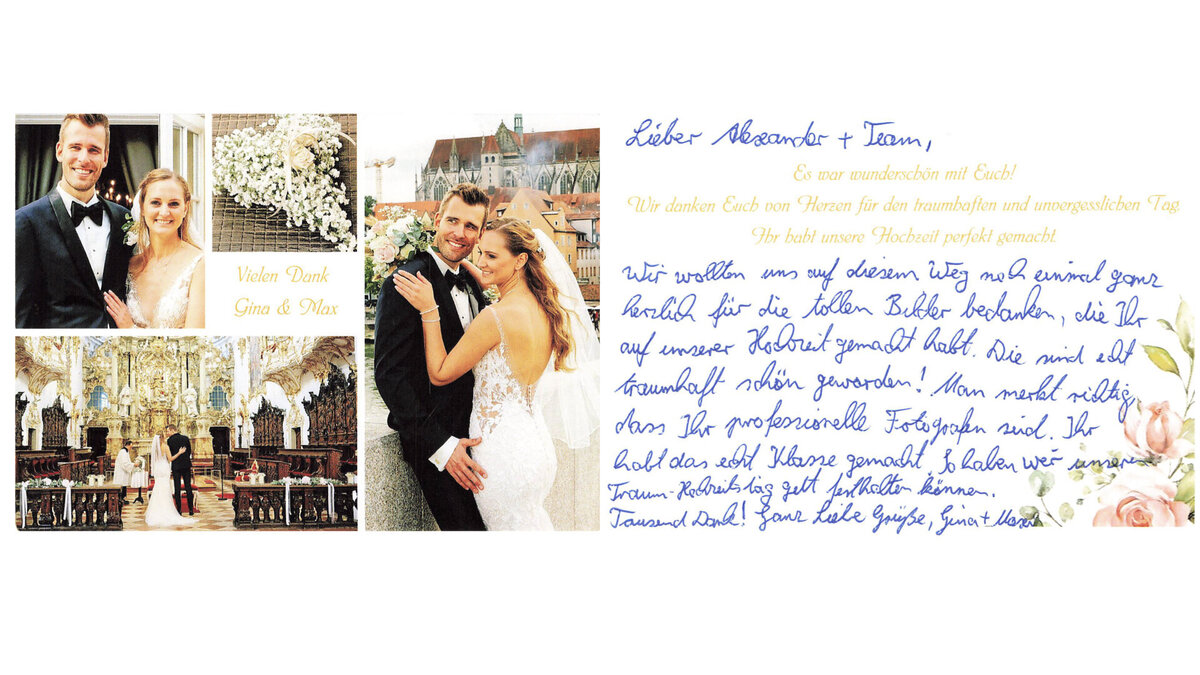 Vielen Dank
Gina & Max
Lieber Alexander + Team,
Es war wunderschön mit Euch!
Wir danken Euch von Herzen für den traumhaften und unvergesslichen Tag.
Ihr habt unsere Hochzeit perfekt gemacht.
Wir wollten uns auf diesem Weg noch einmal ganz
herzlich für die tollen Bilder bedanken, die Ihr
auf unserer Hochzeit gemacht habt. Die sind echt
traumhaft schön geworden! Man merkt richtig,
dass Ihr professionelle Fotografen seid. Ihr
habt das echt Klasse gemacht. So haben wir unseren
Traum-Hochzeitstag festhalten können.
Tausend Dank! Ganz Liebe Grüße, Gina +